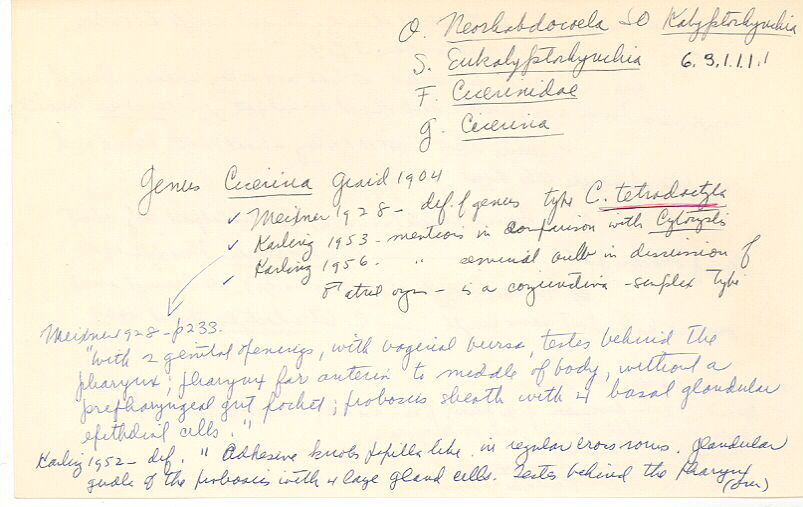 O. Neorhabdocoela SO Kalyptorhynchia
S. Eukalyptorhynchia 6.9.1.1.1.1
F. Cicerinidae
G. Cicerina
Genus Cicerina Giard 1904
✓ Meixner 1928 - def. of genus type C. tetradactyla
✓ Karling 1953 - mentions in comparison with Cytocystis
✓ Karling 1956. " seminal bulb in discussion of
♂ atrial organ - is a conjunctiva - simplex type
Meixner 1928 - p233.
"With 2 genital openings, with vaginal bursa, testes behind the
pharynx; pharynx far anterior to middle of body, without a
prepharyngeal gut pocket; proboscis sheath with 4 basal glandular
epithelial cells."
Karling 1952 - def. "Adhesive knobs papilla like in regular cross rows. Glandular
girdle of the proboscis with 4 large gland cells. Testes behind the pharynx
(over)